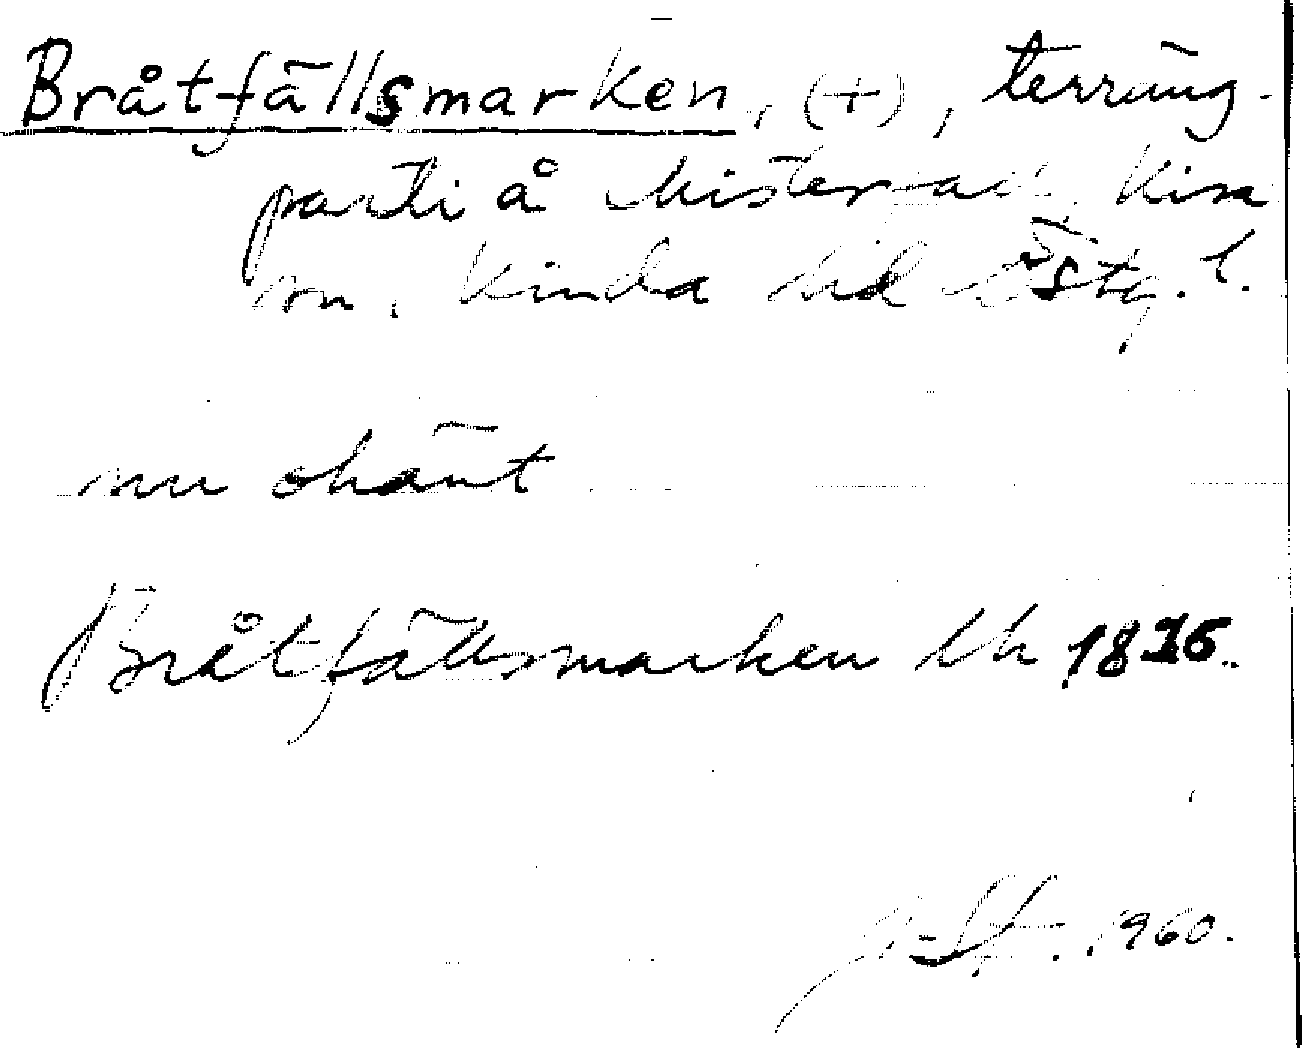 Bråtfällsmarken, (+), terräng-
parti å Misterfall, Kisa
sn. Kinda hd Östg. l.
nu okänt
Bråtfällsmarken Lh 1836.
1960.